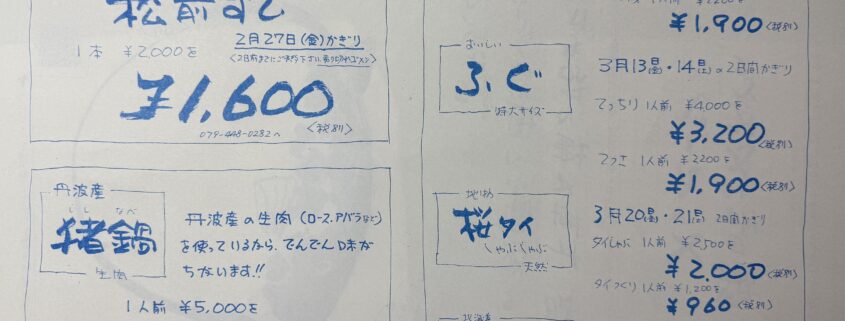 松前すし
1本 ¥2,000を
2月27日(金)かぎり
¥1,600
079-448-0282へ
〈税別〉
丹波産
しし なべ
猪鍋
生肉
丹波産の生肉(ロース、アバラなど)
を使っているから、でんでん味が
ちがいます!!
1人前 ¥5,000を
¥2200を
¥1,900〈税別〉
おいしい
ふぐ
特大サイズ
3月13日㊎・14日㊏の2日間かぎり
てっちり 1人前 ¥4,000を
¥3,200〈税別〉
てっさ 1人前 ¥2200を
¥1,900〈税別〉
地物
桜タイ
しゃぶしゃぶ
天然
3月20日㊎・21日㊏ 2日間かぎり
タイしゃぶ 1人前 ¥2,500を
¥2,000〈税別〉
タイづくり 1人前 ¥1,200を
¥960〈税別〉
北海道